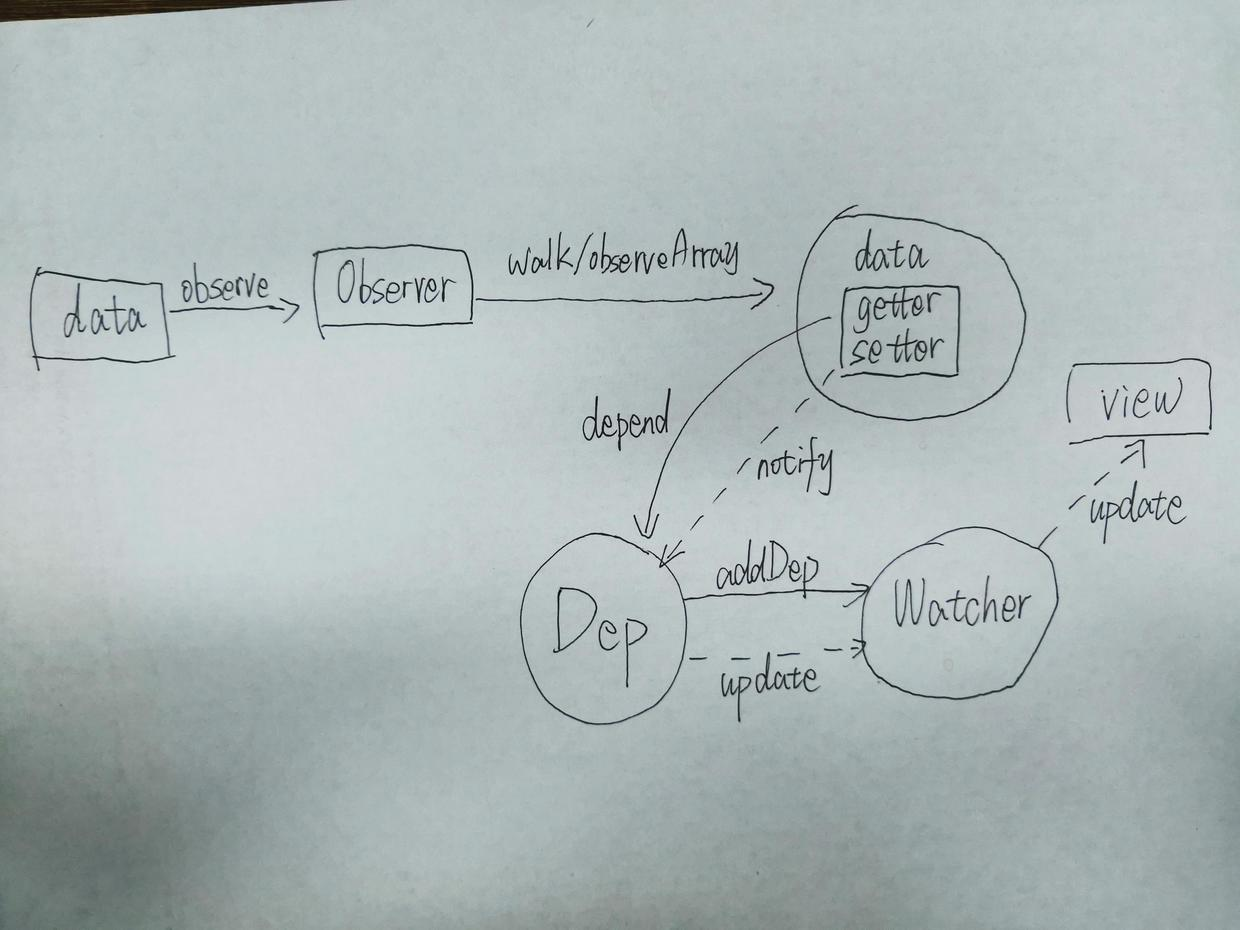 data
observe
Observer
walk/observeArray
data
getter
setter
depend
notify
view
update
Dep
addDep
update
Watcher